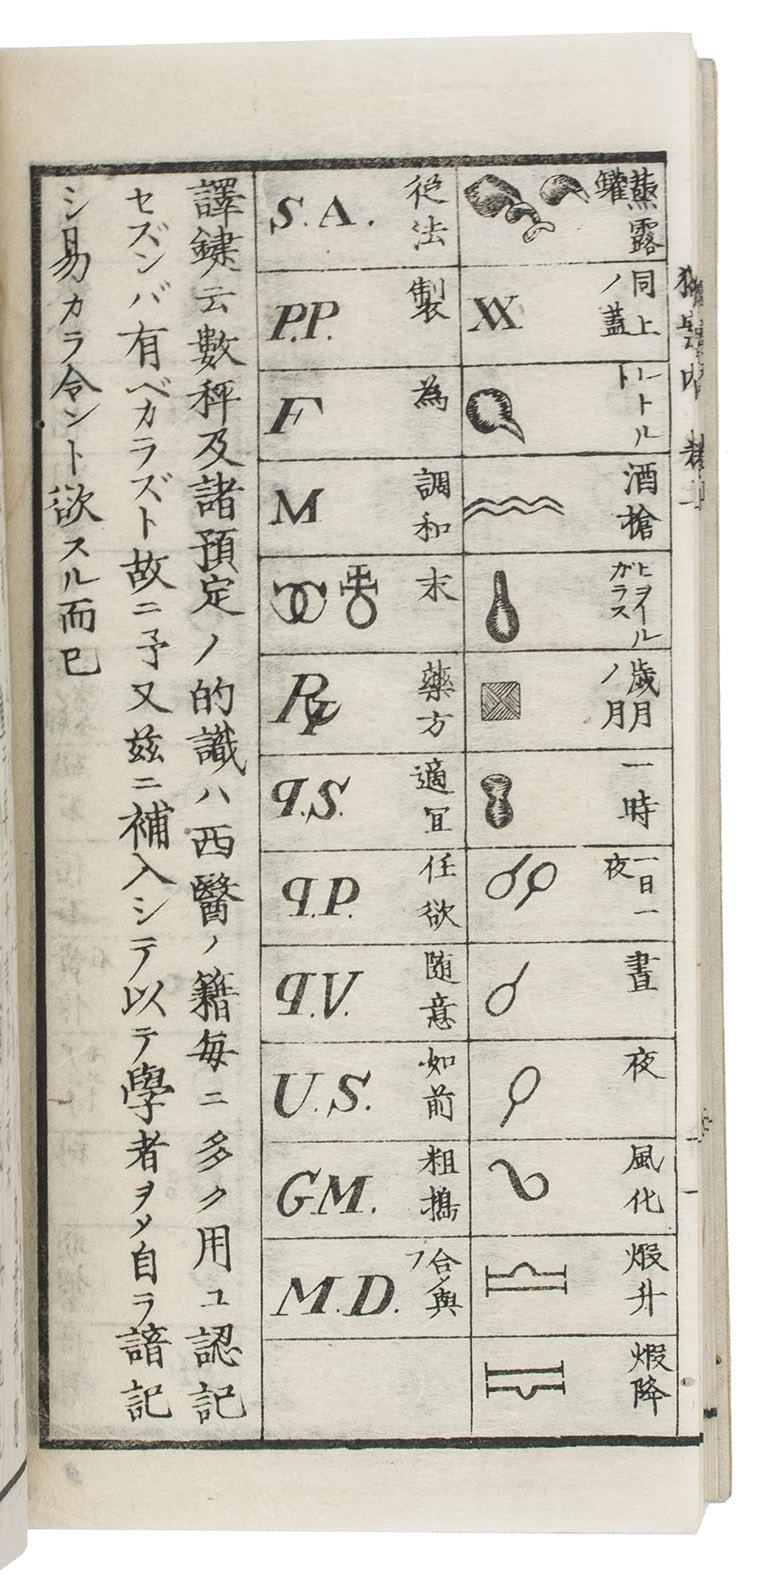 蒸露罐
同上ノ蓋 XX
トルトル
酒槍
ヒヨイルガラス
歳月ノ月
一時
一日一夜
晝
夜
風化
煆升
煆降
S.A. 從法
P.P. 製
F 為
M 調和
末
R 藥方
q.S. 適宜
q.P. 任欲
q.V. 随意
U.S. 如前
G.M. 粗擣
M.D. 合ノ與フ
譯鍵ノ云數秤及諸預定ノ的識ハ西醫ノ籍毎ニ多ク用ユ認記
セズンバ有ベカラズト故ニ予又茲ニ補入シテ以テ學者ヲメ自ラ諳記
シ易カラ令ント欲スル而已